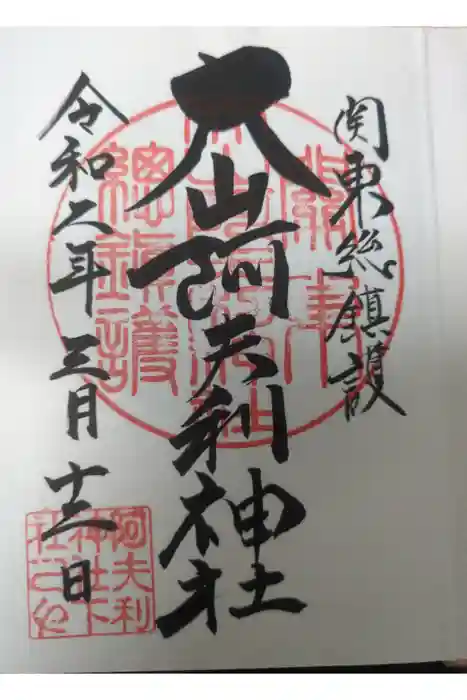 関東総鎮護
大山阿夫利神社
令和二年三月十三日
關東
總鎮護
阿夫利
神社下
社之印